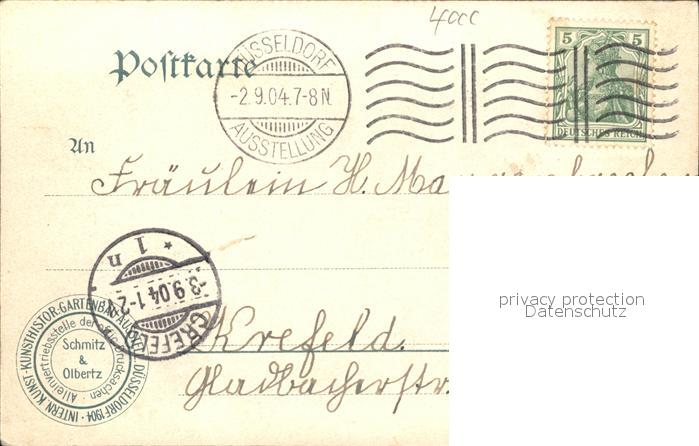 4000
Postkarte
DÜSSELDORF
-2.9.04.7-8N.
AUSSTELLUNG
5 5
DEUTSCHES REICH
An
Fräulein H.
* 1 n
-3.9.04.1-2
CREFELD
Krefeld.
Gladbacherstr.
INTERN. KUNST- KUNSTHISTOR- GARTENBAU- DÜSSELDORF 1904
Alleinvertriebsstelle der Drucksachen
Schmitz
&
Olbertz
privacy protection
Datenschutz